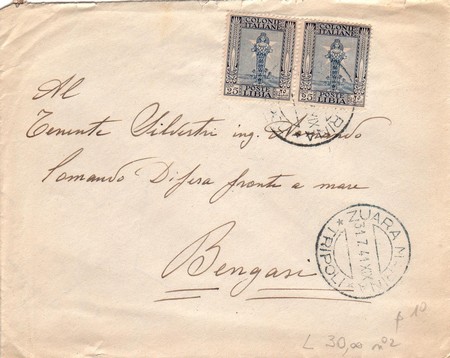 COLONIE ITALIANE COLONIE ITALIANE
25 POSTE LIBIA 25 25 POSTE LIBIA 25
Al
Tenente Silvestri ing.
Comando Difesa fronte a mare
Bengasi
ZUARA
31.7.41 XIX
* TRIPOLI *
L 30,00 n°2
10